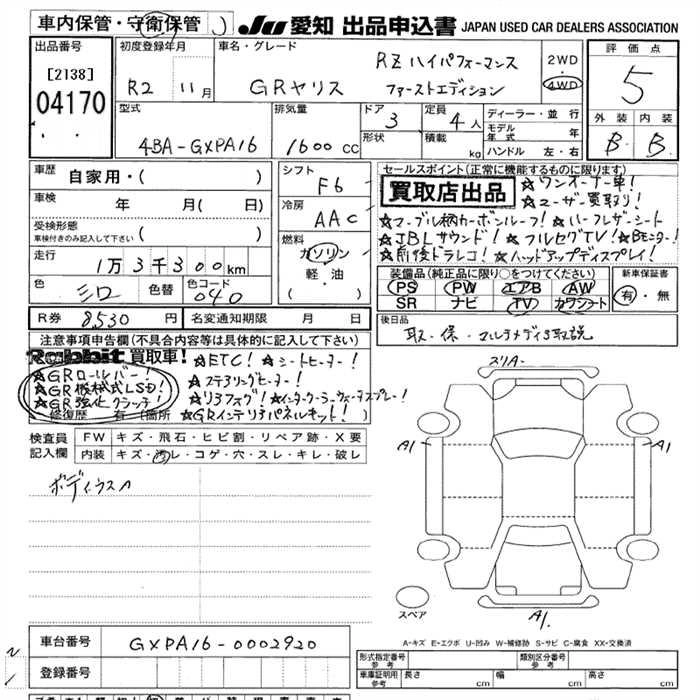 車内保管・守衛保管
JU 愛知 出品申込書 JAPAN USED CAR DEALERS ASSOCIATION
出品番号
[2138]
04170
初度登録年月
R2 11月
車名・グレード
GRヤリス
RZ ハイパフォーマンス
ファーストエディション
2WD
4WD
評価点
5
外装 内装
B B
型式
4BA-GXPA16
排気量
1600 cc
ドア
3
形状
定員
4人
積載
kg
ディーラー・並行
モデル年式 年
ハンドル 左・右
車歴 自家用・( )
車検 年 月( 日)
受検形態
車検付きのみ記入して下さい ( )
走行 1万3千300km
色 シロ 色替 色コード 040
R券 8530円 名変通知期限 月 日
シフト
F6
冷房
AAC
燃料
ガソリン
軽・油
( )
セールスポイント(正常に機能するものに限ります)
買取店出品
★ワンオーナー車!
★ユーザー買取り!
★マーブル柄カーボンルーフ! ★ハーフレザーシート
★JBLサウンド! ★フルセグTV! ★Bモニター!
★前後ドラレコ! ★ヘッドアップディスプレイ!
装備品(純正品に限り○をつけてください)
PS PW エアB AW
SR ナビ TV カワシート
新車保証書
有・無
後日品
取・保・マルチメディア取説
注意事項申告欄(不具合内容等は具体的に記入して下さい)
Rabbit 買取車! ★ETC! ★シートヒーター!
★GRロールバー! ★ステアリングヒーター!
★GR機械式LSD! ★リヤフォグ! ★インタークーラーウォータースプレー!
★GR強化クラッチ! ★GRインテリアパネルキット!
修復歴 有(箇所
検査員記入欄
FW キズ・飛石・ヒビ割・リペア跡・X要
内装 キズ・汚レ・コゲ・穴・スレ・キレ・破レ
ボディウスA
スリA-
A1
A1
A1.
スペア
A-キズ E-エクボ U-凹み W-補修跡 S-サビ C-腐食 XX-交換済
車台番号 GXPA16-0002920
登録番号
形式指定番号
参考
類別区分番号
参考
車庫証明用
参考
長さ cm 幅 cm 高さ cm